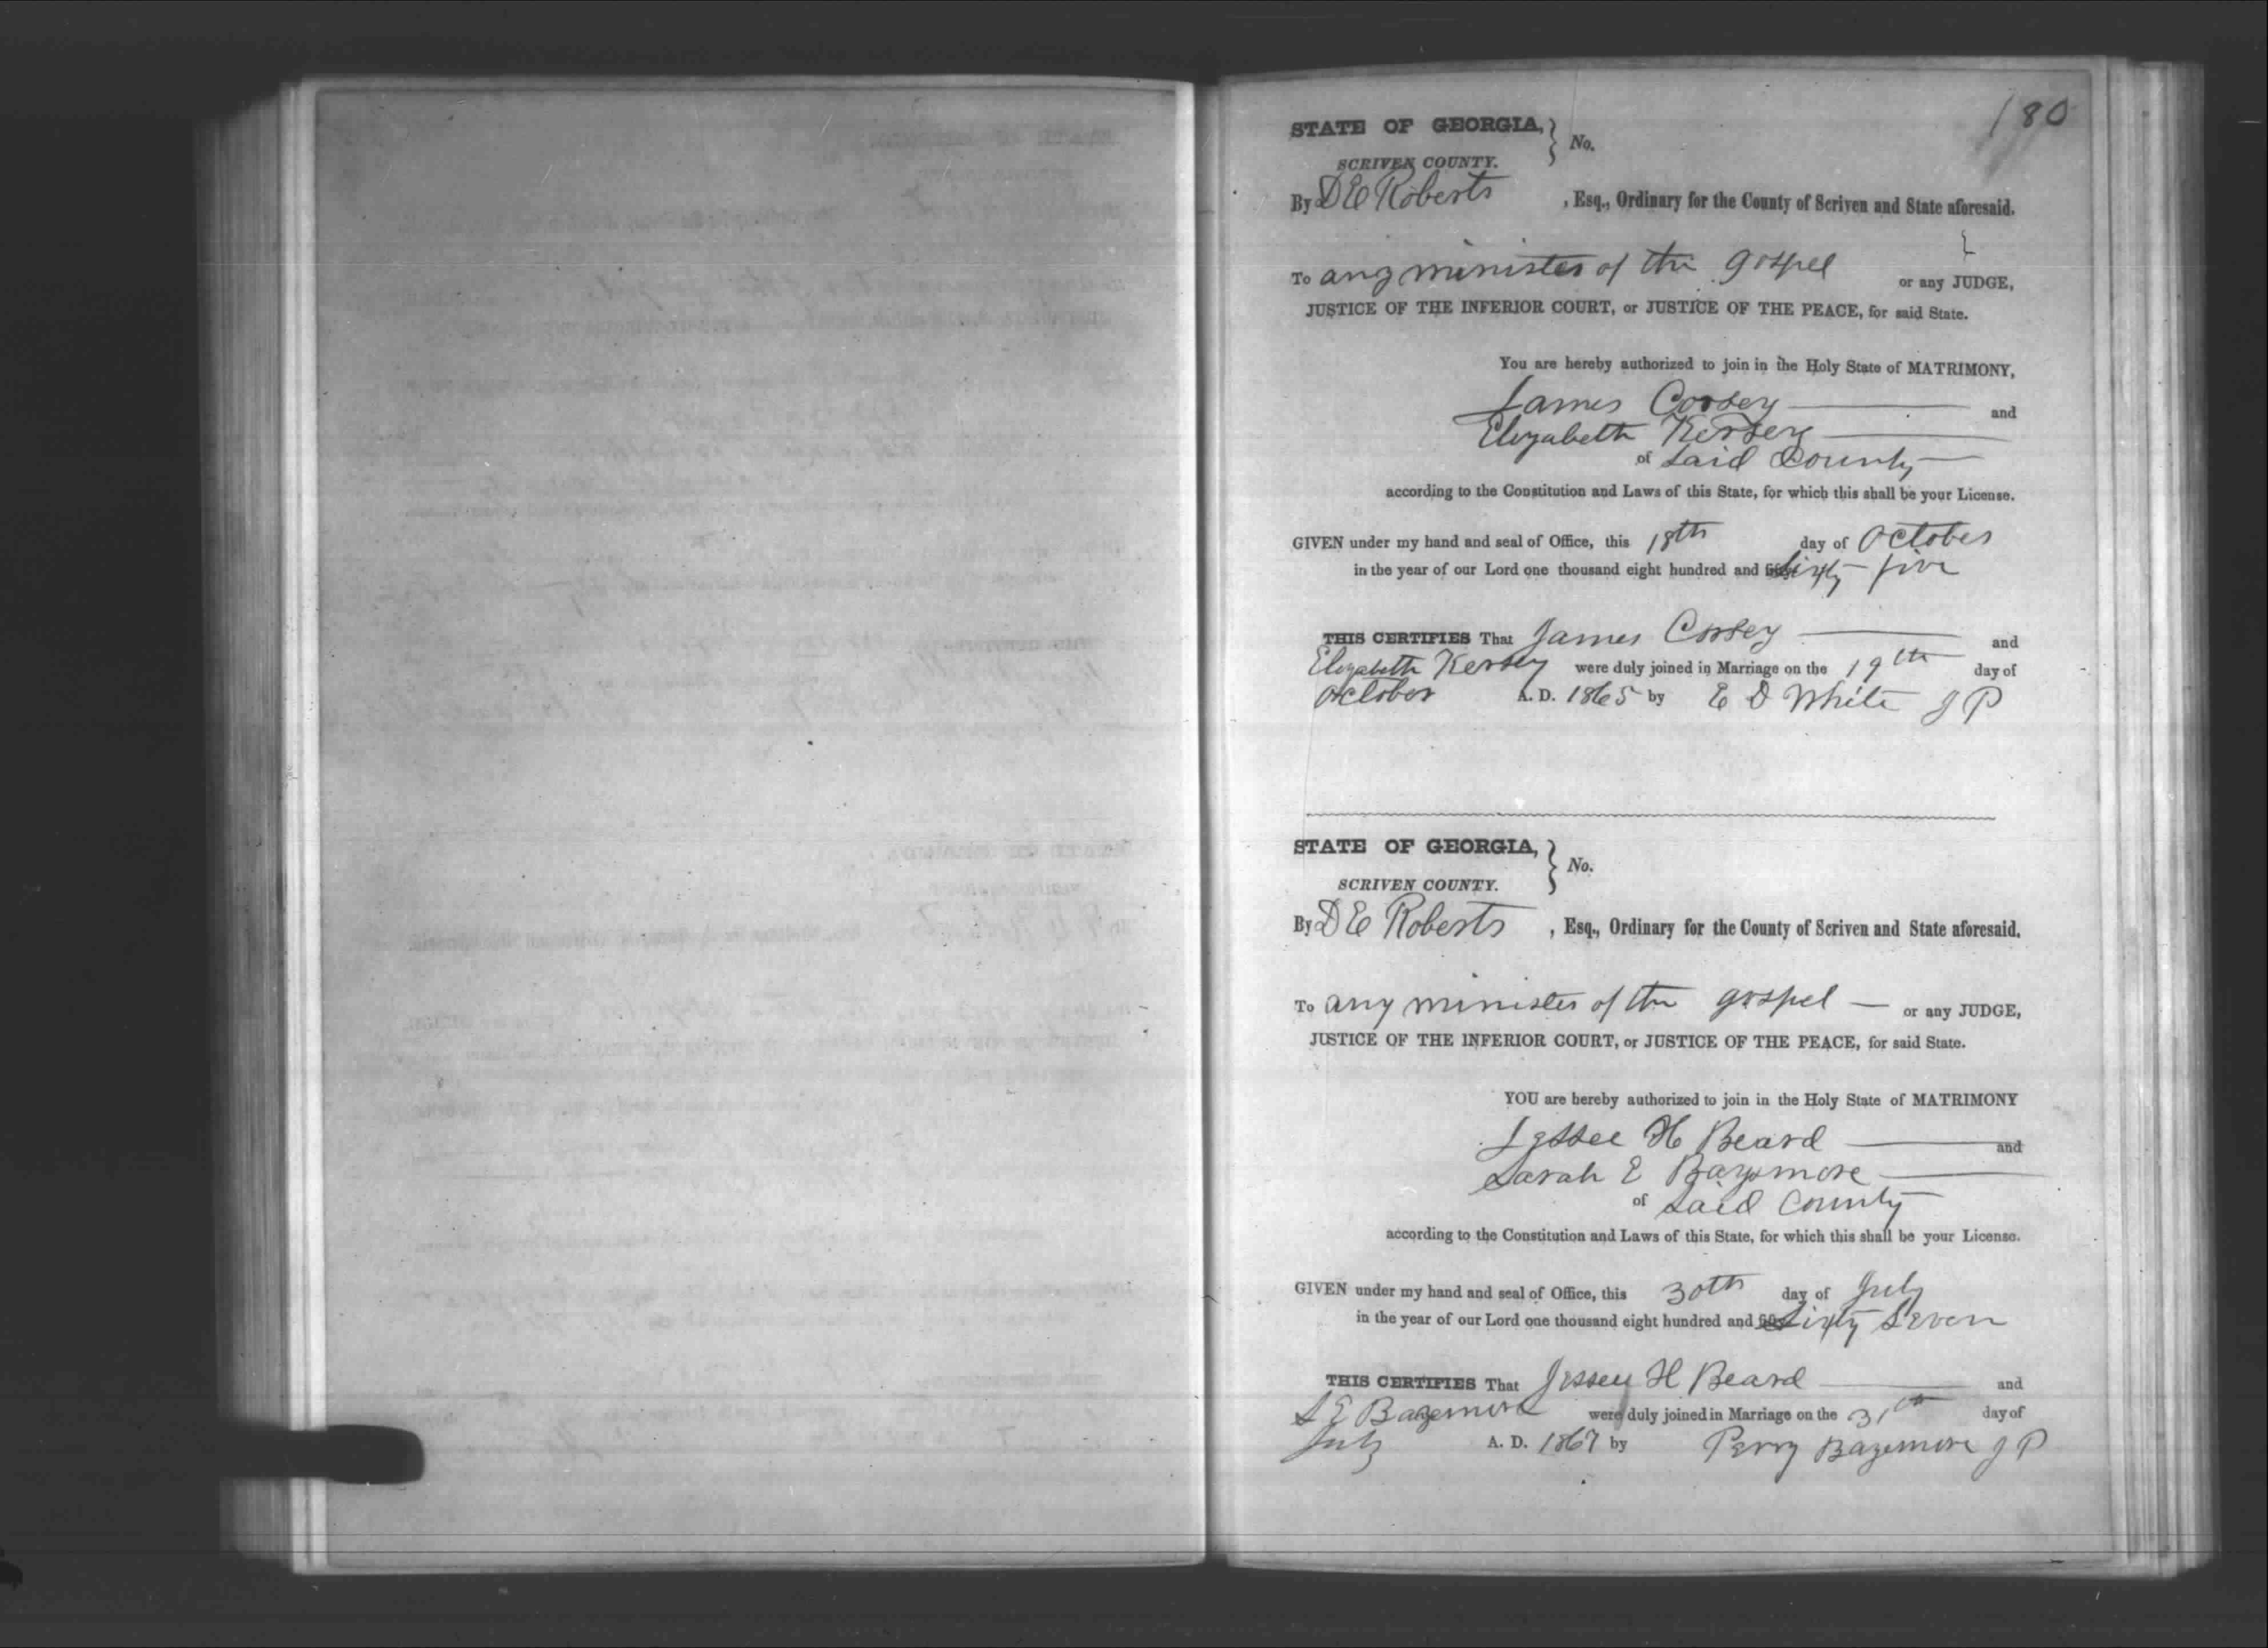 180
STATE OF GEORGIA, } No.
SCRIVEN COUNTY.
By D E Roberts , Esq., Ordinary for the County of Scriven and State aforesaid.
To any minister of the gospel or any JUDGE,
JUSTICE OF THE INFERIOR COURT, or JUSTICE OF THE PEACE, for said State.
You are hereby authorized to join in the Holy State of MATRIMONY,
James Corsey and
Elizabeth Kersey
of Said County
according to the Constitution and Laws of this State, for which this shall be your License.
GIVEN under my hand and seal of Office, this 18th day of October
in the year of our Lord one thousand eight hundred and Sixty five
THIS CERTIFIES That James Corsey and
Elizabeth Kersey were duly joined in Marriage on the 19th day of
October A. D. 1865 by E D White J P
STATE OF GEORGIA, } No.
SCRIVEN COUNTY.
By D E Roberts , Esq., Ordinary for the County of Scriven and State aforesaid.
To any minister of the gospel or any JUDGE,
JUSTICE OF THE INFERIOR COURT, or JUSTICE OF THE PEACE, for said State.
YOU are hereby authorized to join in the Holy State of MATRIMONY
Jessee H Beard and
Sarah E Bazemore
of Said County
according to the Constitution and Laws of this State, for which this shall be your License.
GIVEN under my hand and seal of Office, this 30th day of July
in the year of our Lord one thousand eight hundred and Sixty Seven
THIS CERTIFIES That Jessey H Beard and
S E Bazemore were duly joined in Marriage on the 31th day of
July A. D. 1867 by Perry Bazemore J P